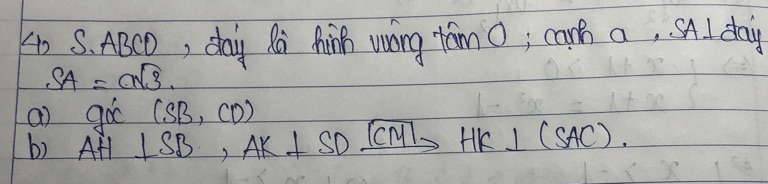 4, S.ABCD, đáy là hình vuông tâm O; cạnh a, SA ⊥ đáy
SA = a√3.
a) góc (SB, CD)
b) AH ⊥ SB, AK ⊥ SD CM→ HK ⊥ (SAC).